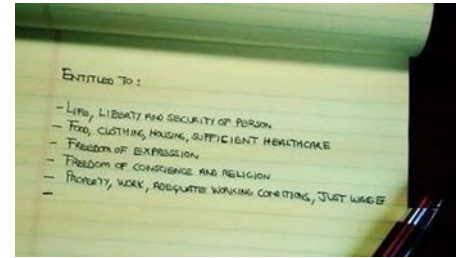 ENTITLED TO:
- LIFE, LIBERTY AND SECURITY OF PERSON
- FOOD, CLOTHING, HOUSING, SUFFICIENT HEALTHCARE
- FREEDOM OF EXPRESSION
- FREEDOM OF CONSCIENCE AND RELIGION
- PROPERTY, WORK, ADEQUATE WORKING CONDITIONS, JUST WAGE
-